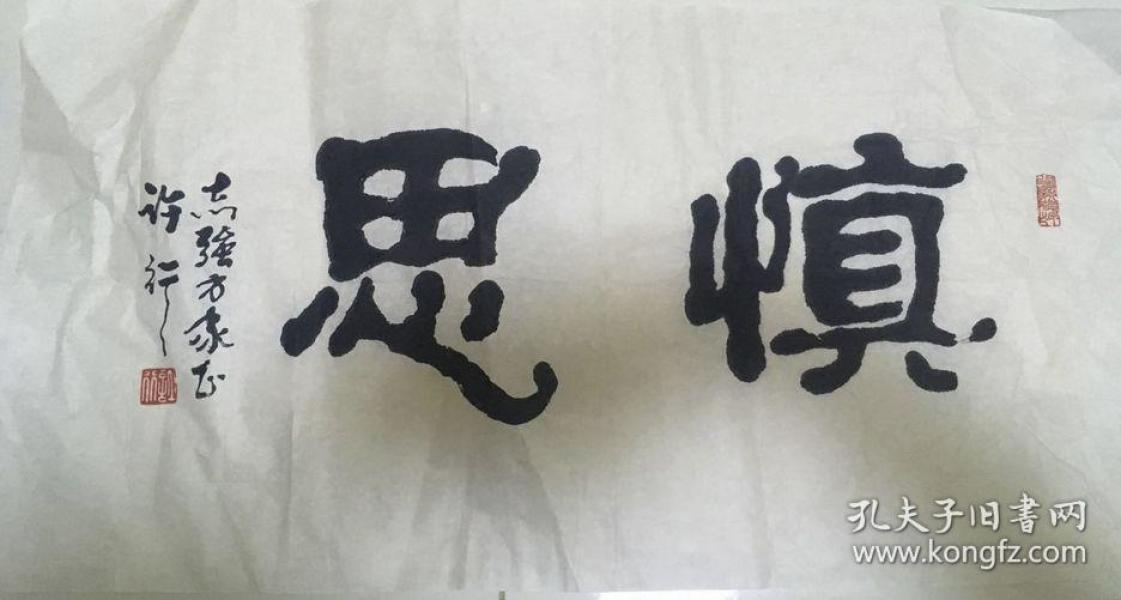 慎思
志强方家正
许行
孔夫子旧书网
www.kongfz.com